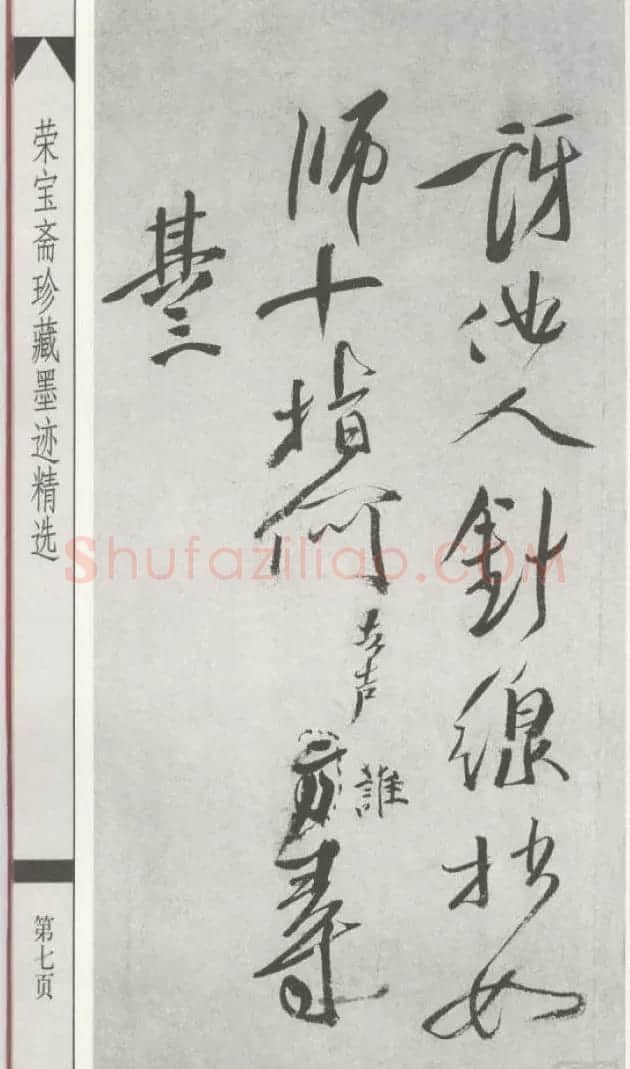 訝他人針線拙如
师十指何
誰
寿
其三
荣宝斋珍藏墨迹精选
第七页
Shufaziliao.COM